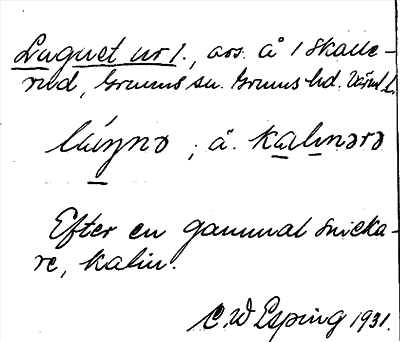 Lugnet nr 1., avs. å 1 Skalle-
rud, Grums sn. Grums hd. Värml.
; ä.
Efter en gammal snicka-
re, Kalin.
C. W Esping 1931.